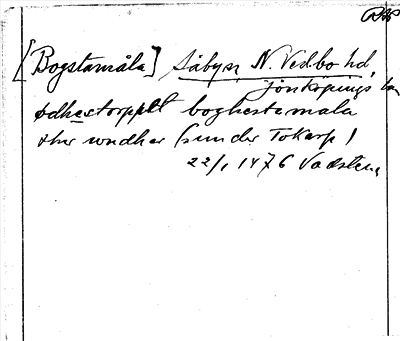 [Bogstamåla] Säby sn N. Vedbo hd
Jönköpings län
ödhestorpplt boghestamala
som under (under Tokarp)
22/1 1476 Vadstena